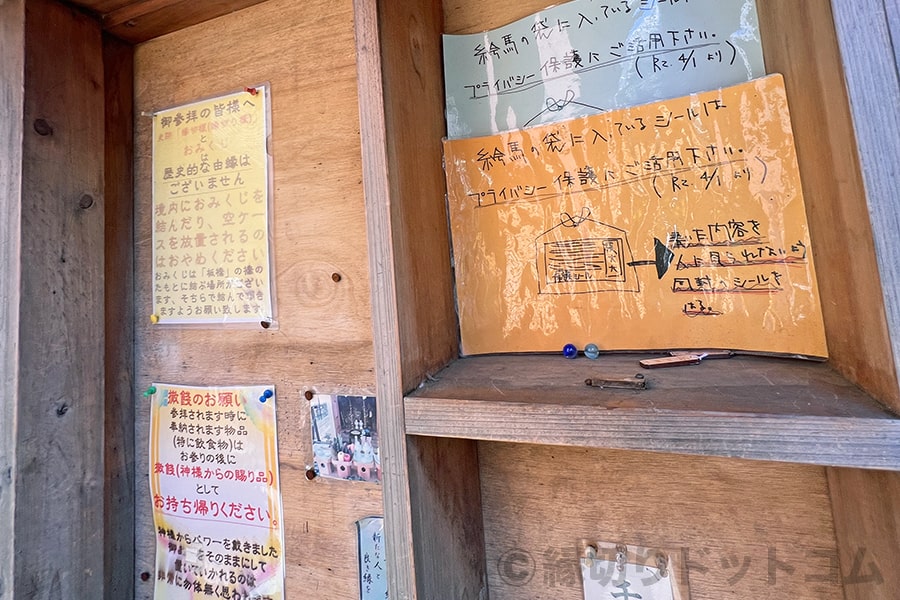 御参拝の皆様へ
と
おみくじ
は
歴史的な由縁は
ございません
境内におみくじを
結んだり、空ケー
スを放置されるの
はおやめください
おみくじは「板榎」の横の
たもとに結ぶ場所がござい
ます、そちらで結んで頂き
ますようお願い致します
撤饌のお願い
参拝されます時に
奉納されます物品
(特に飲食物)は
お参りの後に
撤饌(神様からの賜り品)
として
お持ち帰りください。
神様からパワーを戴きました
をそのままにして
置いていかれるのは
非常に勿体無く思われ
新たな人と
良き縁を
絵馬の袋に入っているシールは
プライバシー保護にご活用下さい。
(R2.4/1より)
絵馬の袋に入っているシールは
プライバシー保護にご活用下さい。
(R2.4/1より)
保護シール
内容を
人に見られないよう
シールを
はる。
©縁切りドットコム